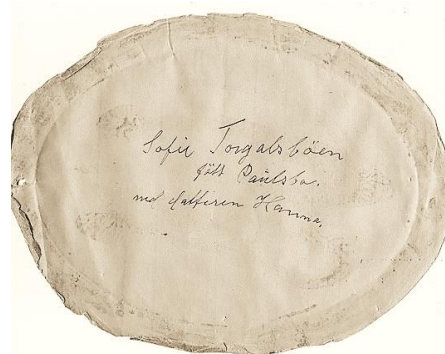 Sofie Torgalsbøen
født Paulsbo.
med datteren Hanna.